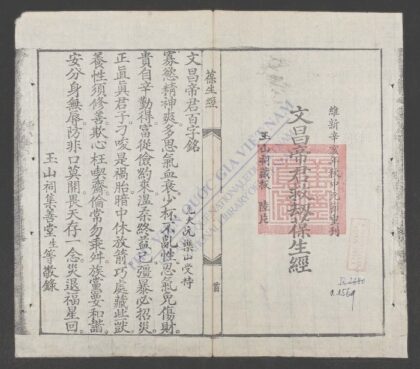 維新辛亥年秋中元節重刊
文昌帝君救劫葆生經
玉山祠藏板 陸片
葆生經
首
文昌帝君百字銘
樂山受持
寡慾精神爽多思氣血衰少杯不亂性忍氣免傷財
貴自辛勤得富從儉約來溫柔終益己彊暴必招災
正直眞君子刁唆是禍胎暗中休放箭巧處藏些獃
養性須修善欺心枉喫齋倫常勿乖舛族黨要和諧
安分身無辱防非口莫開畏天存一念災退福星回
玉山祠集善堂生等敬錄